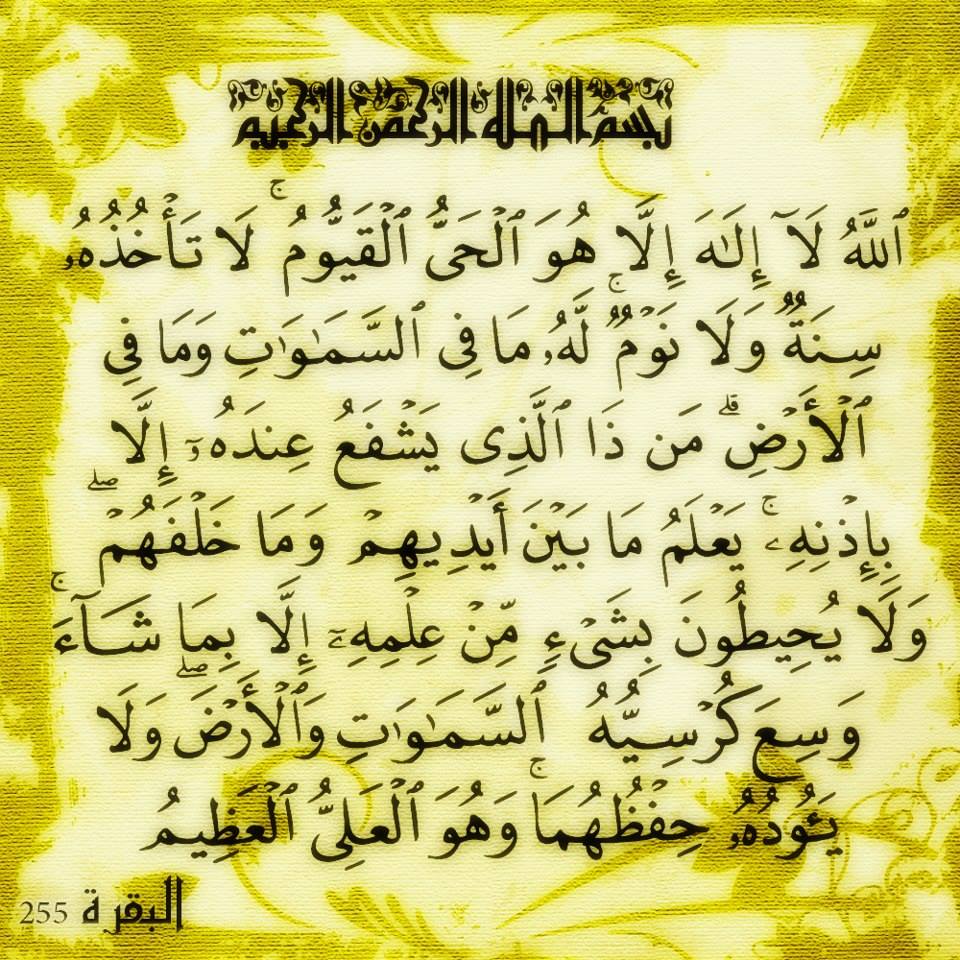 بسم الله الرحمن الرحيم
ٱللَّهُ لَآ إِلَـٰهَ إِلَّا هُوَ ٱلْحَىُّ ٱلْقَيُّومُ ۚ لَا تَأْخُذُهُۥ
سِنَةٌ وَلَا نَوْمٌ ۚ لَّهُۥ مَا فِى ٱلسَّمَـٰوَٰتِ وَمَا فِى
ٱلْأَرْضِ ۗ مَن ذَا ٱلَّذِى يَشْفَعُ عِندَهُۥٓ إِلَّا
بِإِذْنِهِۦ ۚ يَعْلَمُ مَا بَيْنَ أَيْدِيهِمْ وَمَا خَلْفَهُمْ ۖ
وَلَا يُحِيطُونَ بِشَىْءٍ مِّنْ عِلْمِهِۦٓ إِلَّا بِمَا شَآءَ ۚ
وَسِعَ كُرْسِيُّهُ ٱلسَّمَـٰوَٰتِ وَٱلْأَرْضَ ۖ وَلَا
يَـُٔودُهُۥ حِفْظُهُمَا ۚ وَهُوَ ٱلْعَلِىُّ ٱلْعَظِيمُ
البقرة 255